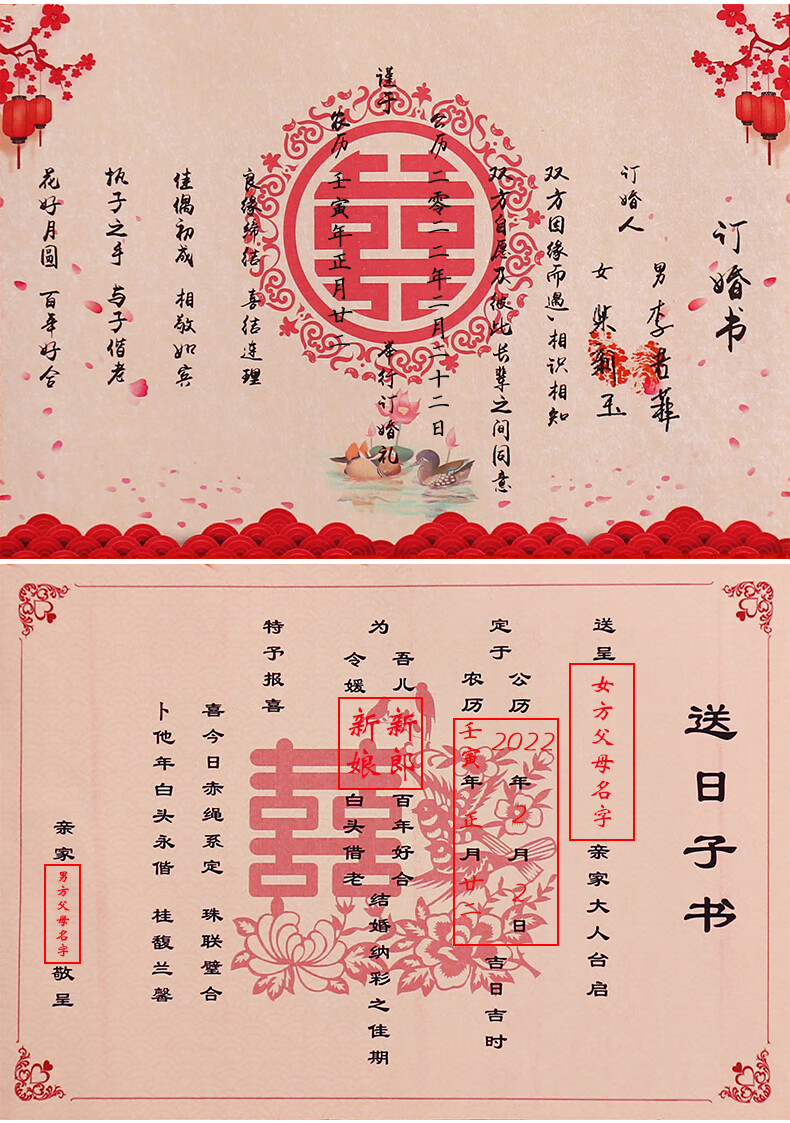 订婚书
订婚人
男 李
女
双方因缘而遇、相识相知
双方自愿及彼此长辈之间同意
谨于
公历 二零二二年二月二十二日
农历 壬寅年正月廿二
举行订婚礼
良缘缔结 喜结连理
佳偶初成 相敬如宾
执子之手 与子偕老
花好月圆 百年好合
送日子书
送呈 女方父母名字 亲家大人台启
定于
公历 2022年2月2日
农历 壬寅年正月廿二
吉日吉时
为
吾儿 新郎 百年好合
令媛 新娘 白头偕老
结婚纳彩之佳期
特予报喜
喜今日赤绳系定 珠联璧合
卜他年白头永偕 桂馥兰馨
亲家 男方父母名字 敬呈